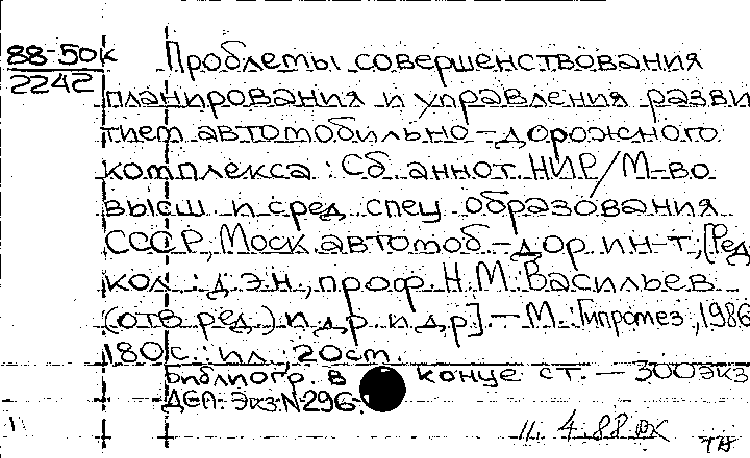 88-50к
2242
Проблемы совершенствования
планирования и управления разви
тием автомобильно-дорожного
комплекса: Сб аннот. НИР/М-во
высш и сред. спец. образования
СССР, Моск автомоб-дор. ин-т; [Ред
кол: д.э.н., проф. Н.М. Васильев
(отв ред.) и др. и др]. — М.: Гипромез, 1986
180 с.: ил.; 20 см.
Библиогр. в конце ст. — 300 экз
ДЕП. Экз. N 296.
11. 4.88